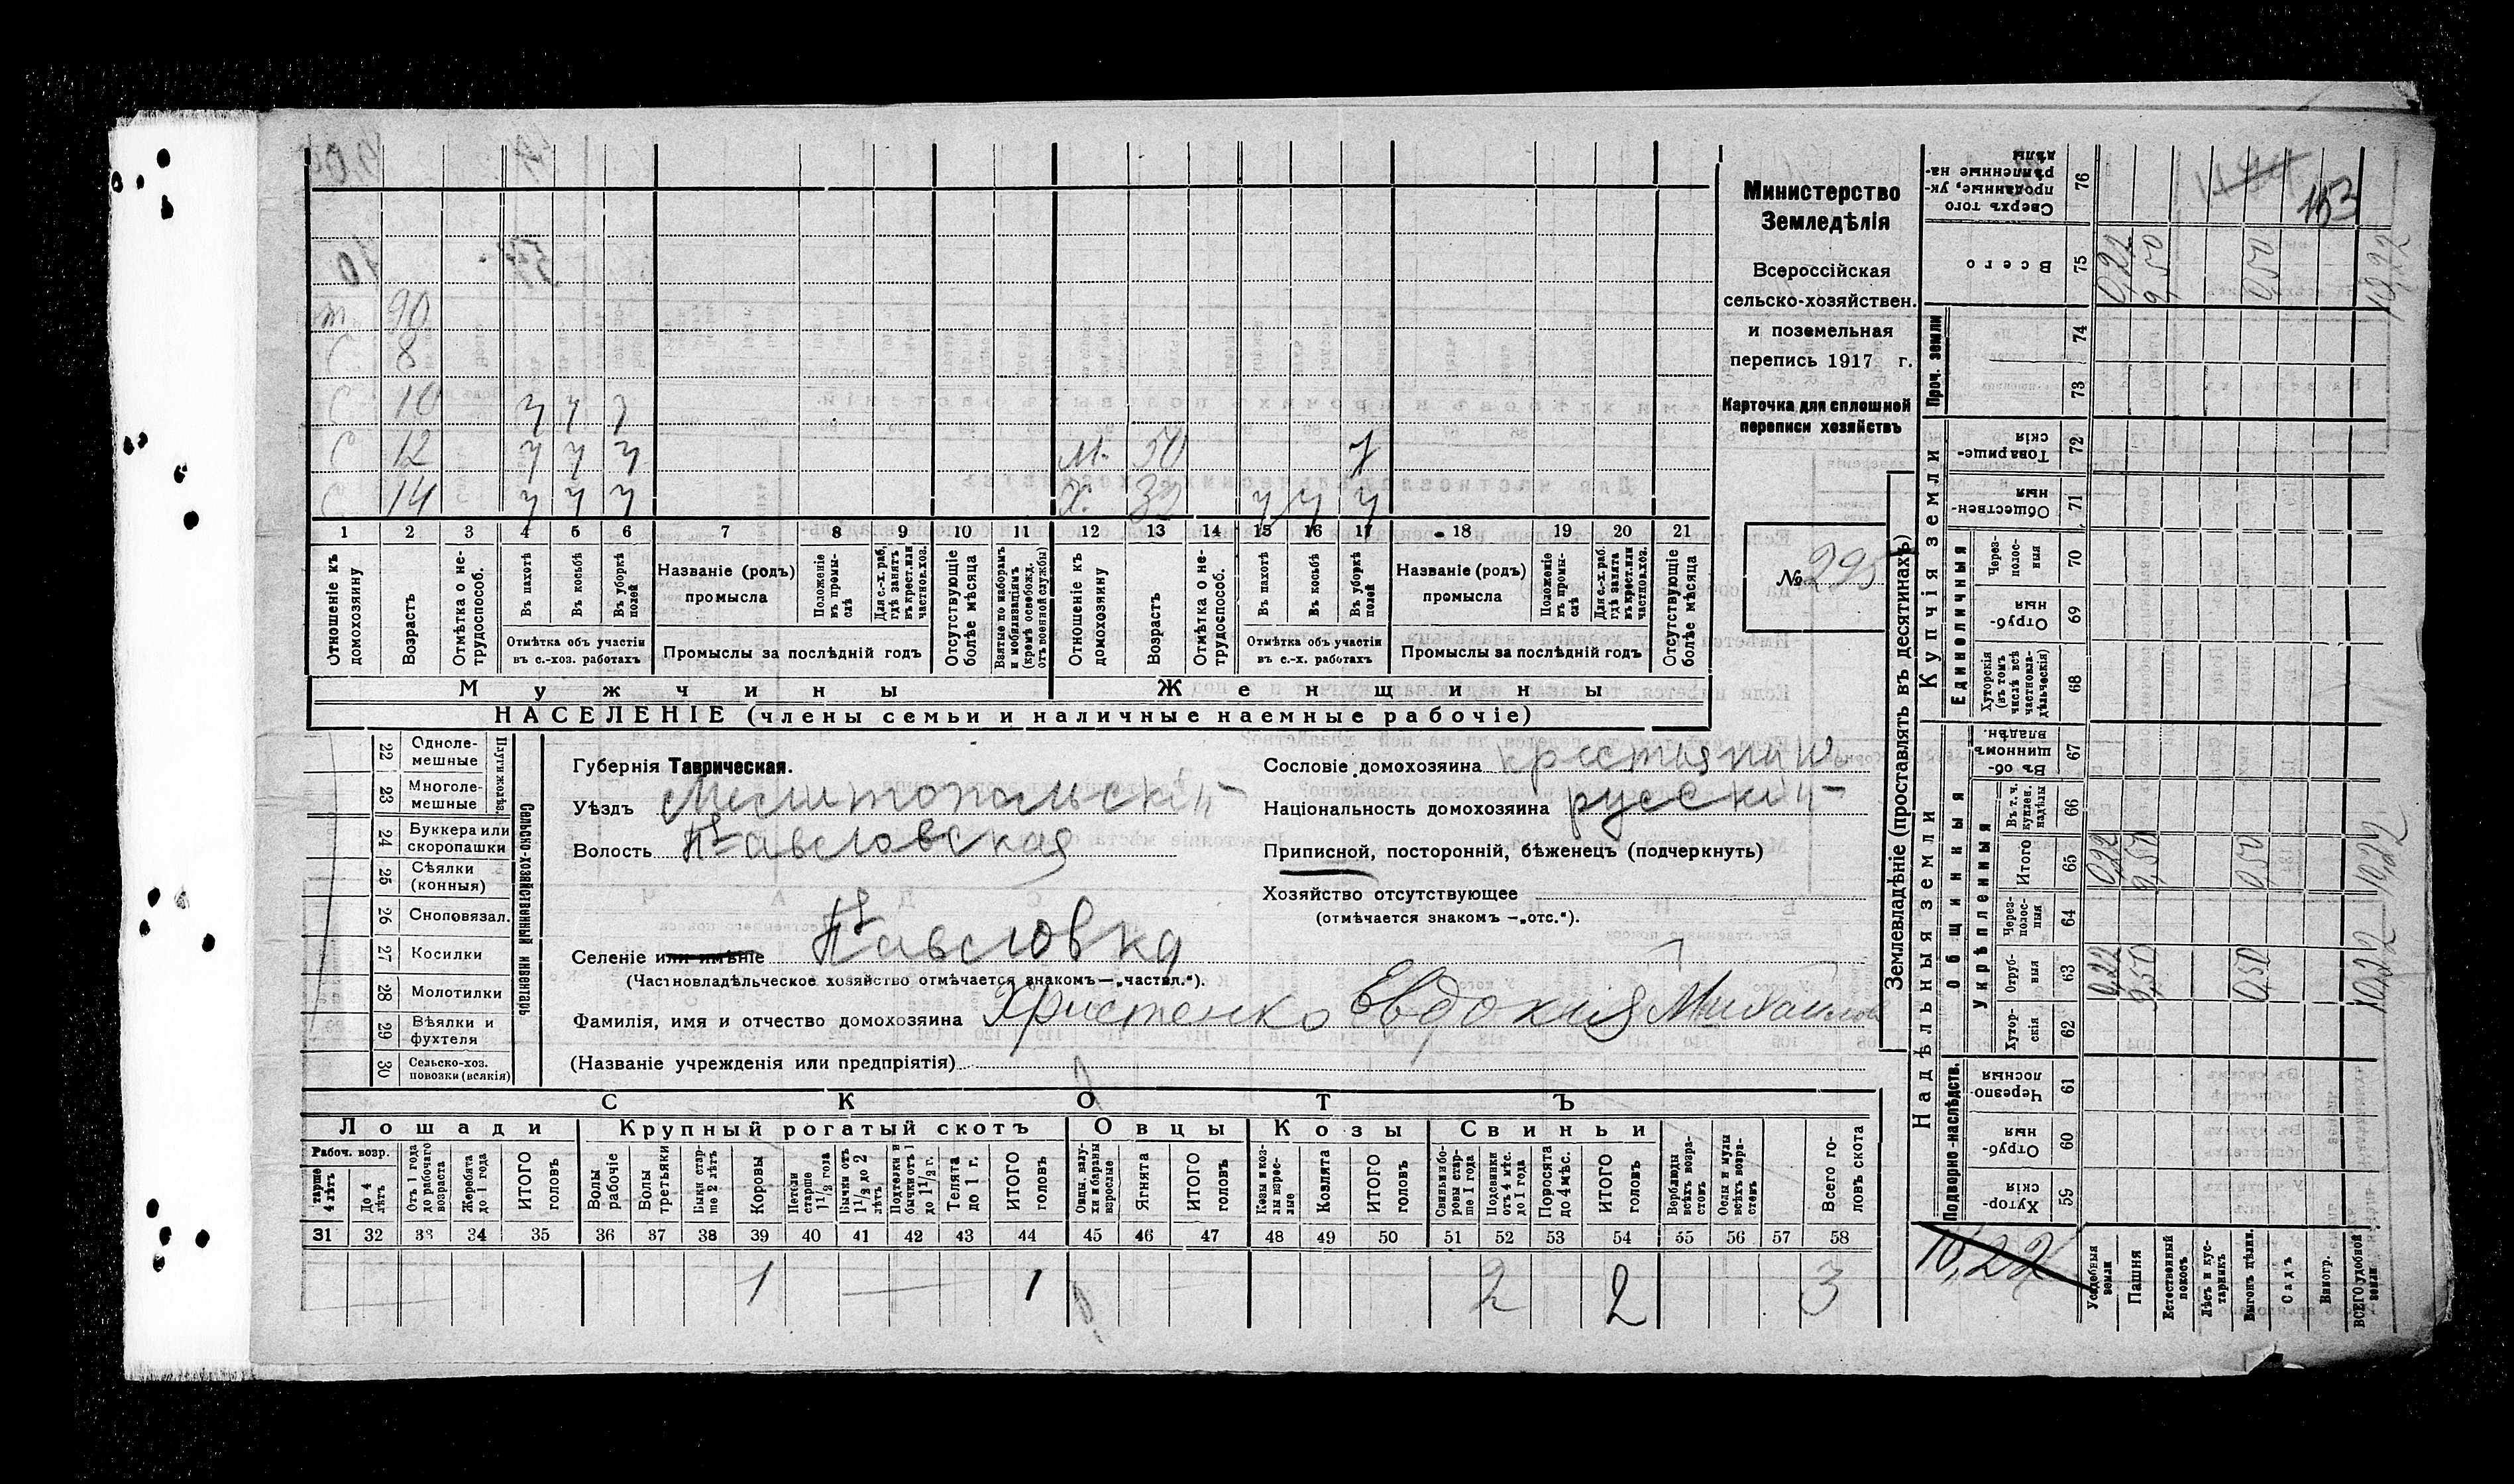 Министерство
Земледѣлія
Всероссійская
сельско-хозяйствен.
и поземельная
перепись 1917 г.
Карточка для сплошной
переписи хозяйствъ
№ 295
90
С 8
С 10 ч ч ч
С 12 ч ч ч М. 50 ч
С 14 ч ч ч Х. 32 ч ч ч
1 2 3 4 5 6 7 8 9 10 11 12 13 14 15 16 17 18 19 20 21
Отношеніе къ домохозяину
Возрастъ
Отмѣтка о не-трудоспособ.
Въ пахотѣ
Въ косьбѣ
Въ уборкѣ полей
Отмѣтка объ участіи въ с.-хоз. работахъ
Названіе (родъ) промысла
Положеніе въ промы-слѣ
Для с.-х. раб. гдѣ занятъ въ крест. или частнов. хоз.
Промыслы за послѣдній годъ
Отсутствующіе болѣе мѣсяца
Взятые по наборамъ и мобилизаціямъ (кромѣ освобожд. отъ военной службы)
Отношеніе къ домохозяину
Возрастъ
Отмѣтка о не-трудоспособ.
Въ пахотѣ
Въ косьбѣ
Въ уборкѣ полей
Отмѣтка объ участіи въ с.-х. работахъ
Названіе (родъ) промысла
Положеніе въ промы-слѣ
Для с.-х. раб. гдѣ занята въ крест. или частнов. хоз.
Промыслы за послѣдній годъ
Отсутствующіе болѣе мѣсяца
Мужчины Женщины
НАСЕЛЕНІЕ (члены семьи и наличные наемные рабочіе)
22 Одноле-мешные
23 Многоле-мешные
24 Буккера или скоропашки
25 Сѣялки (конныя)
26 Сноповязал.
27 Косилки
28 Молотилки
29 Вѣялки и фухтеля
30 Сельско-хоз. повозки (всякія)
Сельско-хозяйственный инвентарь
Губернія Таврическая.
Уѣздъ Мелитопольскій
Волость Павловская
Селеніе или имѣніе Павловка
(Частновладѣльческое хозяйство отмѣчается знакомъ—„частвл.“).
Фамилія, имя и отчество домохозяина Христенко Евдокия Михайлов
(Названіе учрежденія или предпріятія)
Сословіе домохозяина крестьянин
Національность домохозяина русскій
Приписной, посторонній, бѣженецъ (подчеркнуть)
Хозяйство отсутствующее
(отмѣчается знакомъ —„отс.“).
СКОТЪ
Лошади Крупный рогатый скотъ Овцы Козы Свиньи
Рабоч. возр.
старше 4 лѣтъ
До 4 лѣтъ
Отъ 1 года до рабочаго возраста
Жеребята до 1 года
ИТОГО головъ
Волы рабочіе
Волы третьяки
Быки стар-ше 2 лѣтъ
Коровы
Нетели старше 1 1/2 года
Бычки отъ 1 1/2 до 2 лѣтъ
Подтелки и бычки отъ 1 до 1 1/2 г.
Телята до 1 г.
ИТОГО головъ
Овцы, валу-хи и бараны взрослые
Ягнята
ИТОГО головъ
Козы и коз-лы взрос-лые
Козлята
ИТОГО головъ
Свиньи и бо-ровы стар-ше 1 года
Подсвинки отъ 4 мѣс. до 1 года
Поросята до 4 мѣс.
ИТОГО головъ
Верблюды всѣхъ возра-стовъ
Ослы и мулы всѣхъ возра-стовъ
Всего го-ловъ скота
31 32 33 34 35 36 37 38 39 40 41 42 43 44 45 46 47 48 49 50 51 52 53 54 55 56 57 58
1 1 2 2 3
Землевладѣніе (проставлять въ десятинахъ)
Надѣльныя земли Купчія земли Проч. земли
Подворно-наслѣдств.
Общинныя
Укрѣпленныя
Единоличныя
Сверхъ того проданные, ук-рѣпленные на-дѣлы 76
Всего 75 0,22 9,50 0,50 10,22
74
73
Товарище-скія 72
Обществен-ныя 71
Через-полос-ныя 70
Отруб-ныя 69
Хуторскія (въ томъ числѣ всѣ частновла-дѣльческія) 68
Въ об-щинномъ владѣн. 67
Въ т. ч. куплен. надѣлы 66
Итого 65 0,22 9,50 0,50 10,22
Через-полос-ныя 64
Отруб-ныя 63 0,22 9,50 0,50 10,22
Хутор-скія 62
Черезпо-лосныя 61
Отруб-ныя 60
Хутор-скія 59
153
10,22
Усадебныя земли
Пашня
Естественный покосъ
Лѣсъ и кус-тарникъ
Выгонъ цѣлин.
Садъ
Виногр.
ВСЕГО удобной земли